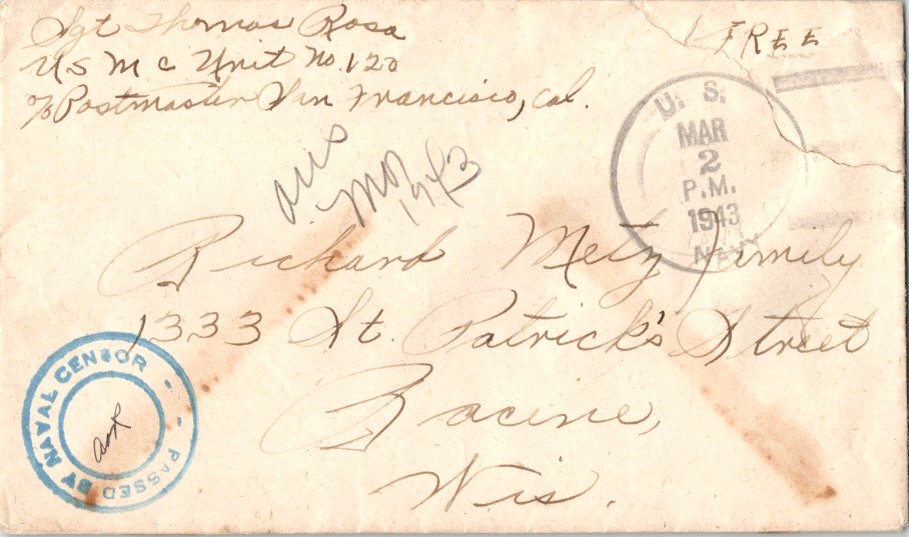 Sgt Thomas Rosa
U S M C Unit No. 120
c/o Postmaster San Francisco, Cal.
FREE
U. S.
MAR
2
P.M.
1943
NAVY
Ans
1943
Richard Metz Family
1333 St. Patrick's Street
Racine,
Wis.
PASSED BY NAVAL CENSOR